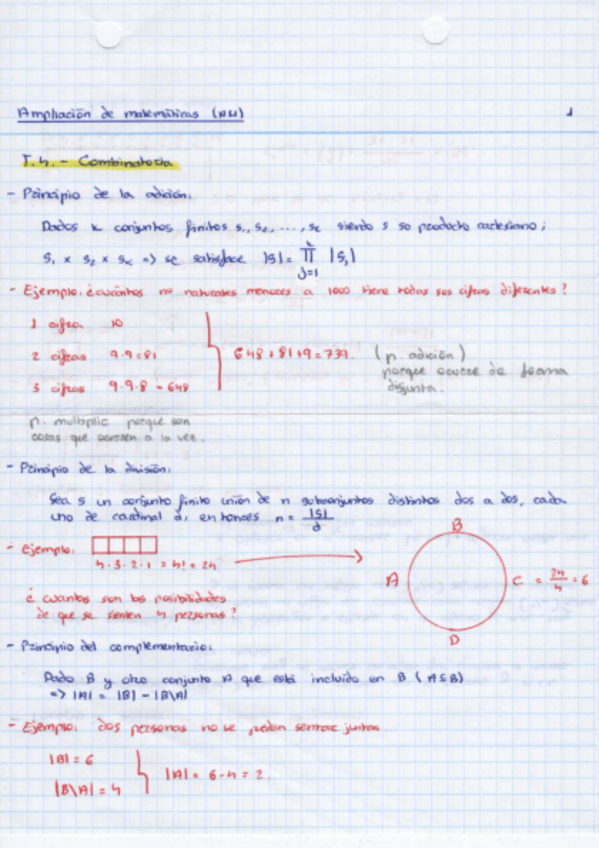 Ampliación de matemáticas (AM) 1
T.4.- Combinatoria
- Principio de la adición:
Dados k conjuntos finitos S₁, S₂, ..., Sk siendo S so producto cartesiano;
S₁ x S₂ x Sk => se satisface |S| = ∏ |Sj|
k
j=1
- Ejemplo: ¿cuántos nº naturales menores a 1000 tiene todas sus cifras diferentes?
1 cifra 10
2 cifras 9·9=81
3 cifras 9·9·8=648
648+81+9=739. (p. adición)
porque ocurre de forma
disjunta.
p. multiplic porque son
cosas que ocurren a la vez.
- Principio de la división:
Sea S un conjunto finito unión de n subconjuntos distintos dos a dos, cada
uno de cardinal d, entonces n = |S|/d
- ejemplo:
4·3·2·1 = 4! = 24
B
A
C = 24/4 = 6
D
¿cuantos son las posibilidades
de que se sienten 4 personas?
- Principio del complementario:
Dado B y otro conjunto A que está incluido en B (A⊆B)
=> |A| = |B| - |B\A|
- Ejemplo: dos personas no se pueden sentar juntas
|B| = 6
|B\A| = 4
|A| = 6-4 = 2.